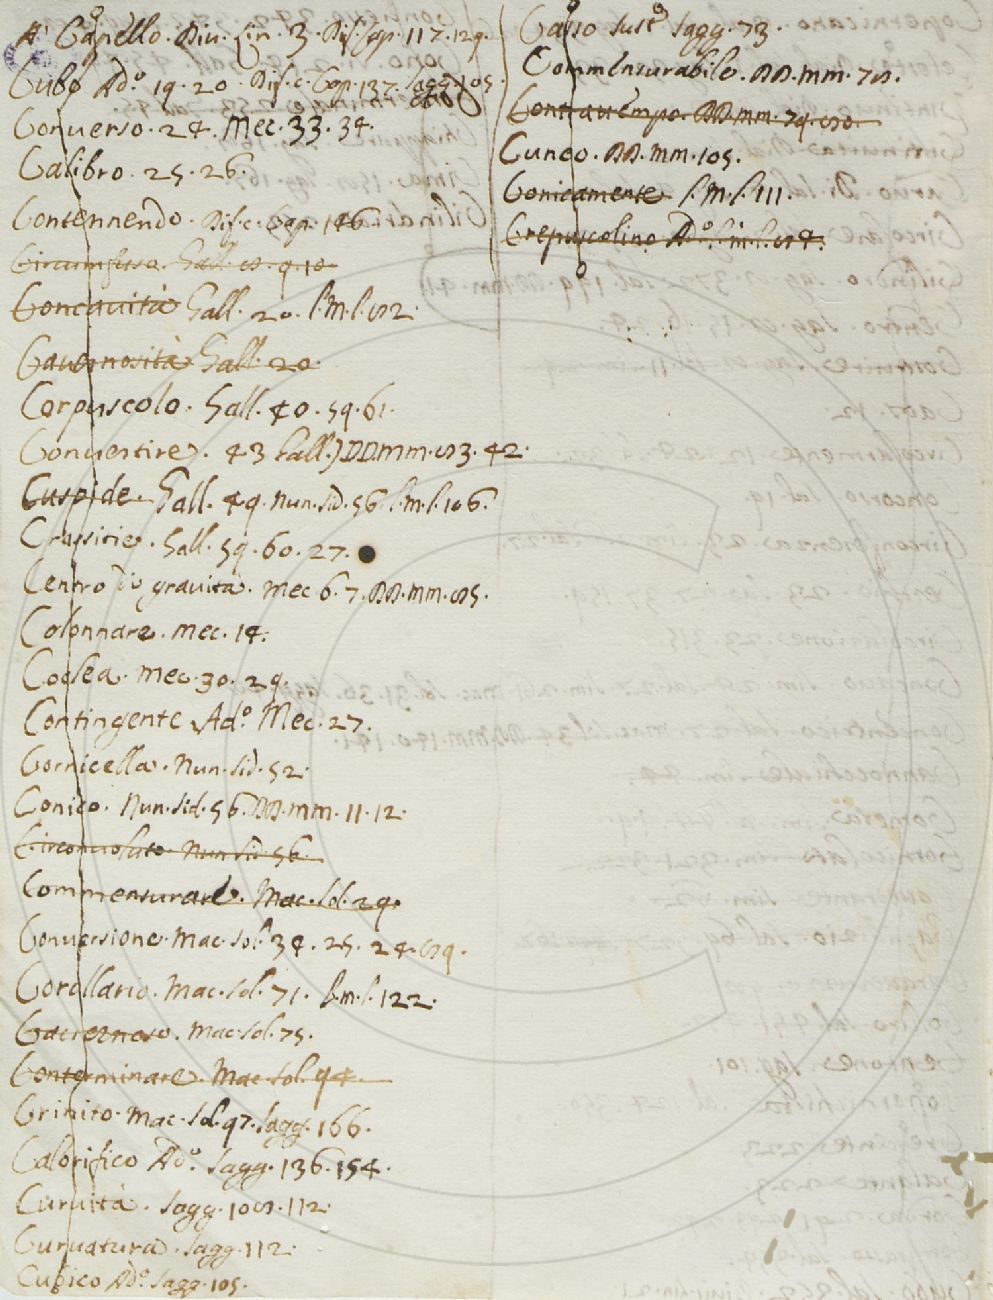 Capello. Diu. Lin. 3. Dif. Cap. 117. 129.
Cubo Ad.º 19. 20. Dif. c. Cap. 137. Sagg. 105.
Conuerso. 24. Mec. 33. 34.
Calibro. 25. 26.
Contennendo. Dif. c. Cap. 146.
Gall. 9. 10
Concauità Gall. 20. l. m. l. 82.
Cauernosità Gall. 20
Corpuscolo. Gall. 40. 59. 61.
Conuertire. 43 Gall.) DD. mm. 83. 42.
Cuspide. Gall. 49. Nun. sid. 56 l. m. l. 106.
Crassitie. Gall. 59. 60. 27.
Centro di grauità. Mec 6. 7. DD. mm. 85.
Colonnare. Mec. 14.
Coclea. Mec. 30. 29.
Contingente Ad.º Mec. 27.
Cornicella. Nun. sid. 52.
Conico. Nun. sid. 56. DD. mm. 11. 12.
Circonuoluto. Nun. sid. 56.
Commensurare. Mac. sol. 29.
Conuersione. Mac. sol. 34. 25. 24. 89.
Corollario. Mac. sol. 71. l. m. l. 122.
Cauernoso. Mac. sol. 75.
Conterminare. Mac. sol. 94.
Crinito. Mac. sol. 97. Sagg. 166.
Calorifico Ad.º Sagg. 136. 154.
Curuità. Sagg. 108. 112.
Curuatura. Sagg. 112.
Cubico Ad.º Sagg. 105.
Sust.º Sagg. 73.
Commensurabile. DD. mm. 78.
DD. mm. 79. 80.
Cuneo. DD. mm. 105.
Conicamente l. m. l. 111.
Crepuscolino Ad.º l. m. l. 84.